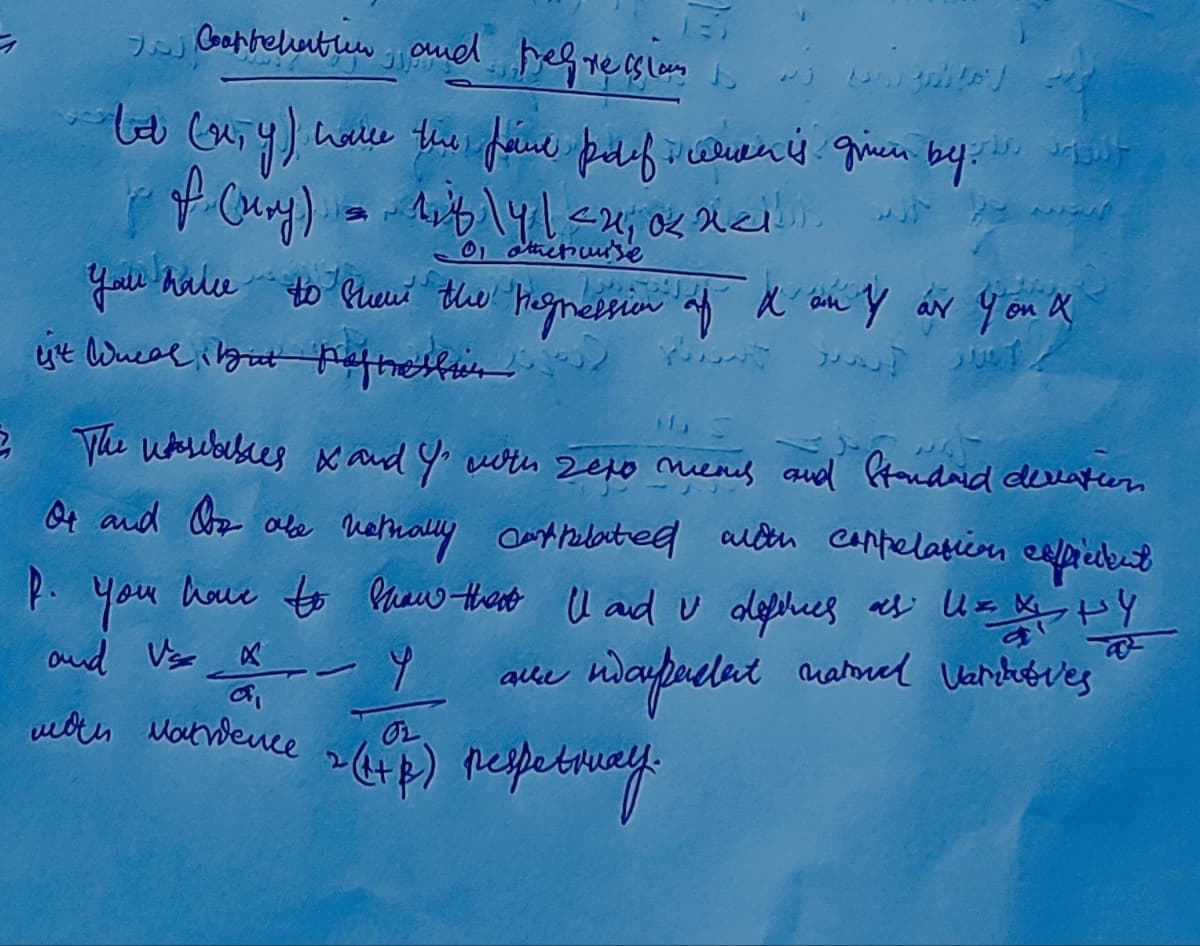 Correlation and regression
Let (x, y) have the joint pdf, is given by:
f(x,y) = 1, if |y| < x, 0 < x < 1
0, otherwise
You have to show the regression of X on Y or Y on X
but regression
The variables X and Y with zero means and Standard deviation
σ1 and σ2 are normally correlated with correlation coefficient
ρ. You have to show that U and V defines as U = X/σ1 + Y/σ2
and V = X/σ1 − Y/σ2 are independent normal
with variance 2(1+ρ) respectively.